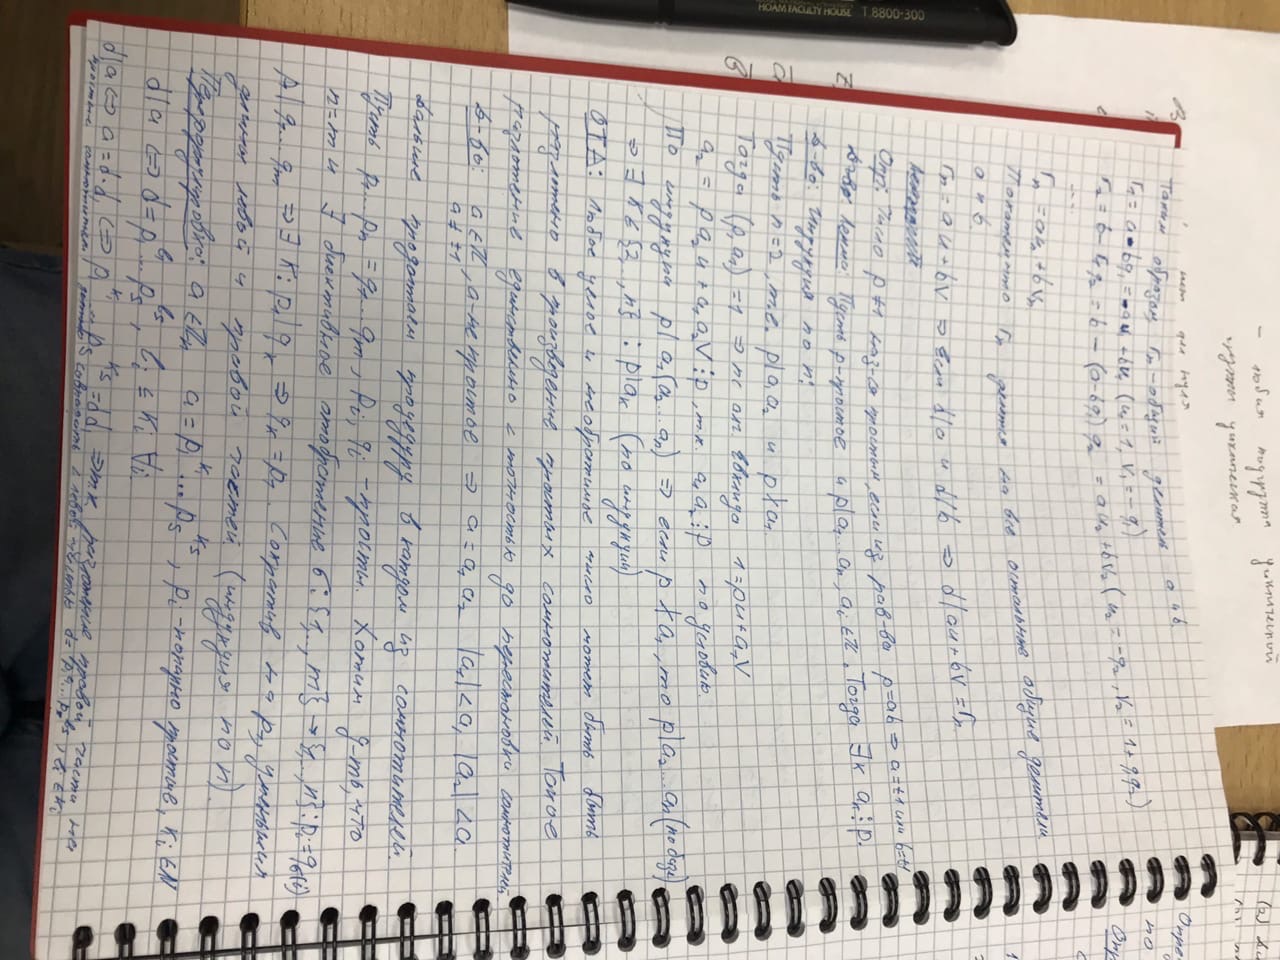 - любая подгруппа циклической
группы циклическая.
нет для нуля
Таким образом, rₙ - общий делитель a и b.
r₁ = a - bq₁ = au₁ + bv₁ (u₁ = 1, v₁ = -q₁)
r₂ = b - r₁q₂ = b - (a - bq₁)q₂ = au₂ + bv₂ (u₂ = -q₂, v₂ = 1 + q₁q₂)
...
rₙ = auₙ + bvₙ
Покажем, что rₙ делится на все остальные общие делители
a и b.
rₙ = au + bv ⇒ если d|a и d|b ⇒ d|au + bv = rₙ
Опр: Число p ≠ 1 наз-ся простым, если из рав-ва p = ab ⇒ a = ±1 или b = ±1
Лемма: Пусть p - простое и p|a₁...aₙ, aᵢ ∈ ℤ. Тогда ∃k aₖ⋮p.
Д-во: Индукция по n:
Пусть n = 2, т.е. p|a₁a₂ и p∤a₁.
Тогда (p, a₁) = 1 ⇒ по алг. Евклида 1 = pu + a₁v
a₂ = pa₂u + a₁a₂v ⋮ p, т.к. a₁a₂⋮p по условию.
По индукции p|a₁(a₂...aₙ) ⇒ если p∤a₁, то p|a₂...aₙ (по базе)
⇒ ∃ k ∈ {2,..,n} : p|aₖ (по индукции)
ОТА: Любое целое и необратимое число может быть быть
разложено в произведение простых сомножителей. Такое
разложение единственно с точностью до перестановки сомножителей.
Д-во: a ∈ ℤ, a - не простое ⇒ a = a₁a₂ |a₁| < a, |a₂| < a.
a ≠ ±1
Дальше продолжаем процедуру в каждом из сомножителей.
Пусть p₁...pₙ = q₁...qₘ, pᵢ, qᵢ - просты. Хотим д-ть, что
n = m и ∃ биективное отображение σ: {1,..,m} → {1,..,n} : pᵢ = q_σ(i)
p₁|q₁...qₘ ⇒ ∃ k : p₁|qₖ ⇒ qₖ = p₁. Сократив на p₁, уменьшил
длины левой и правой частей. (индукция по n).
Переформулировка: a ∈ ℤₙ a = p₁^k₁...pₛ^kₛ, pᵢ - попарно простые, kᵢ ∈ ℕ
d|a ⇔ d = p₁^l₁...pₛ^lₛ, lᵢ ≤ kᵢ ∀i.
d|a ⇔ a = d·d₁ ⇔ p₁^k₁...pₛ^kₛ = dd₁ ⇒ т.к. разложение правой части на
простые сомножители должно совпадать с левой частью d = p₁^l₁...pₛ^lₛ, lᵢ ≤ kᵢ
HOAM FACULTY HOUSE T. 8800-300
Опре
по
Опр